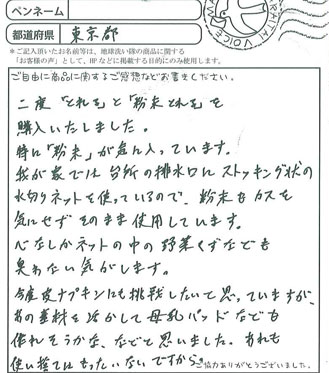 ペンネーム
都道府県 東京都
＊ご記入頂いたお名前等は、地球洗い隊の商品に関する
「お客様の声」として、HPなどに掲載する目的にのみ使用します。
ご自由に商品に関するご感想などお書きください。
二度「とれる」と「粉末とれる」を
購入いたしました。
特に「粉末」が気に入っています。
我が家では台所の排水口にストッキング状の
水切りネットを使っているので、粉末もカスを
気にせずそのまま使用しています。
心なしかネットの中の野菜くずなども
臭わない気がします。
今度皮ナプキンにも挑戦したいと思っていますが、
あの素材を活かして母乳パッドなども
作れそうかな、などと思いました。あれも
使い捨てはもったいないですから。
ご協力ありがとうございました。